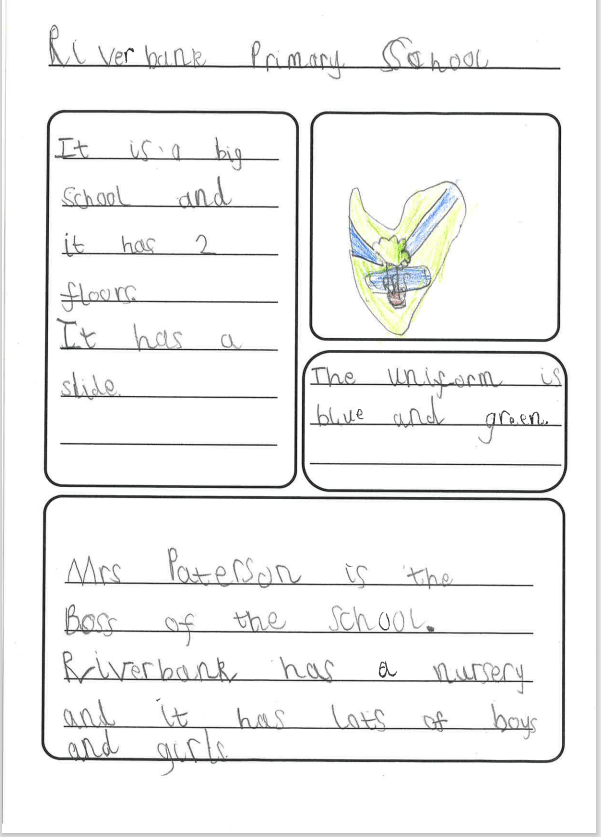 Riverbank Primary School
It is a big
school and
it has 2
floors.
It has a
slide.
The uniform is
blue and green.
Mrs Paterson is the
Boss of the school.
Rriverbank has a nursery
and it has lots of boys
and girls